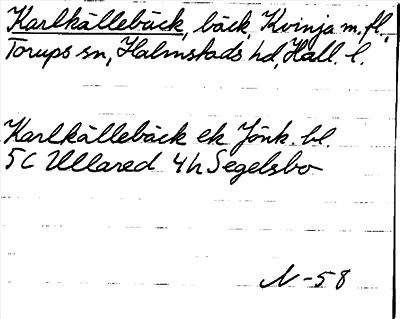 Karlkällebäck, bäck, Kvinja m.fl.,
Torups sn, Halmstads hd, Hall. l.
Karlkällebäck ek Jönk. bl.
5C Ullared 4h Segelsbo
N-58